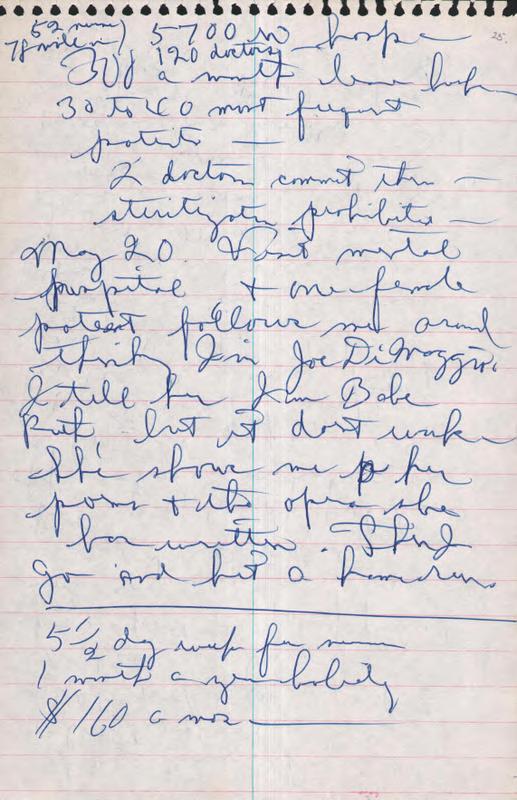 52 nurses) 5-700 in hosp
25.
78 male in 120 doctors
30 a month leave hosp
30 to 40 most frequent
patients —
2 doctors commit them —
sterilization prohibited —
May 20. Visit mental
hospital + one female
patient follows me around
thinking I'm Joe DiMaggio.
I tell her I am Babe
Ruth, but it don't work
She shows me her
poems + the opera she
has written. I
go and hit a home run.
5 1/2 day week for nurses
1 month a year holiday
$160 a mos